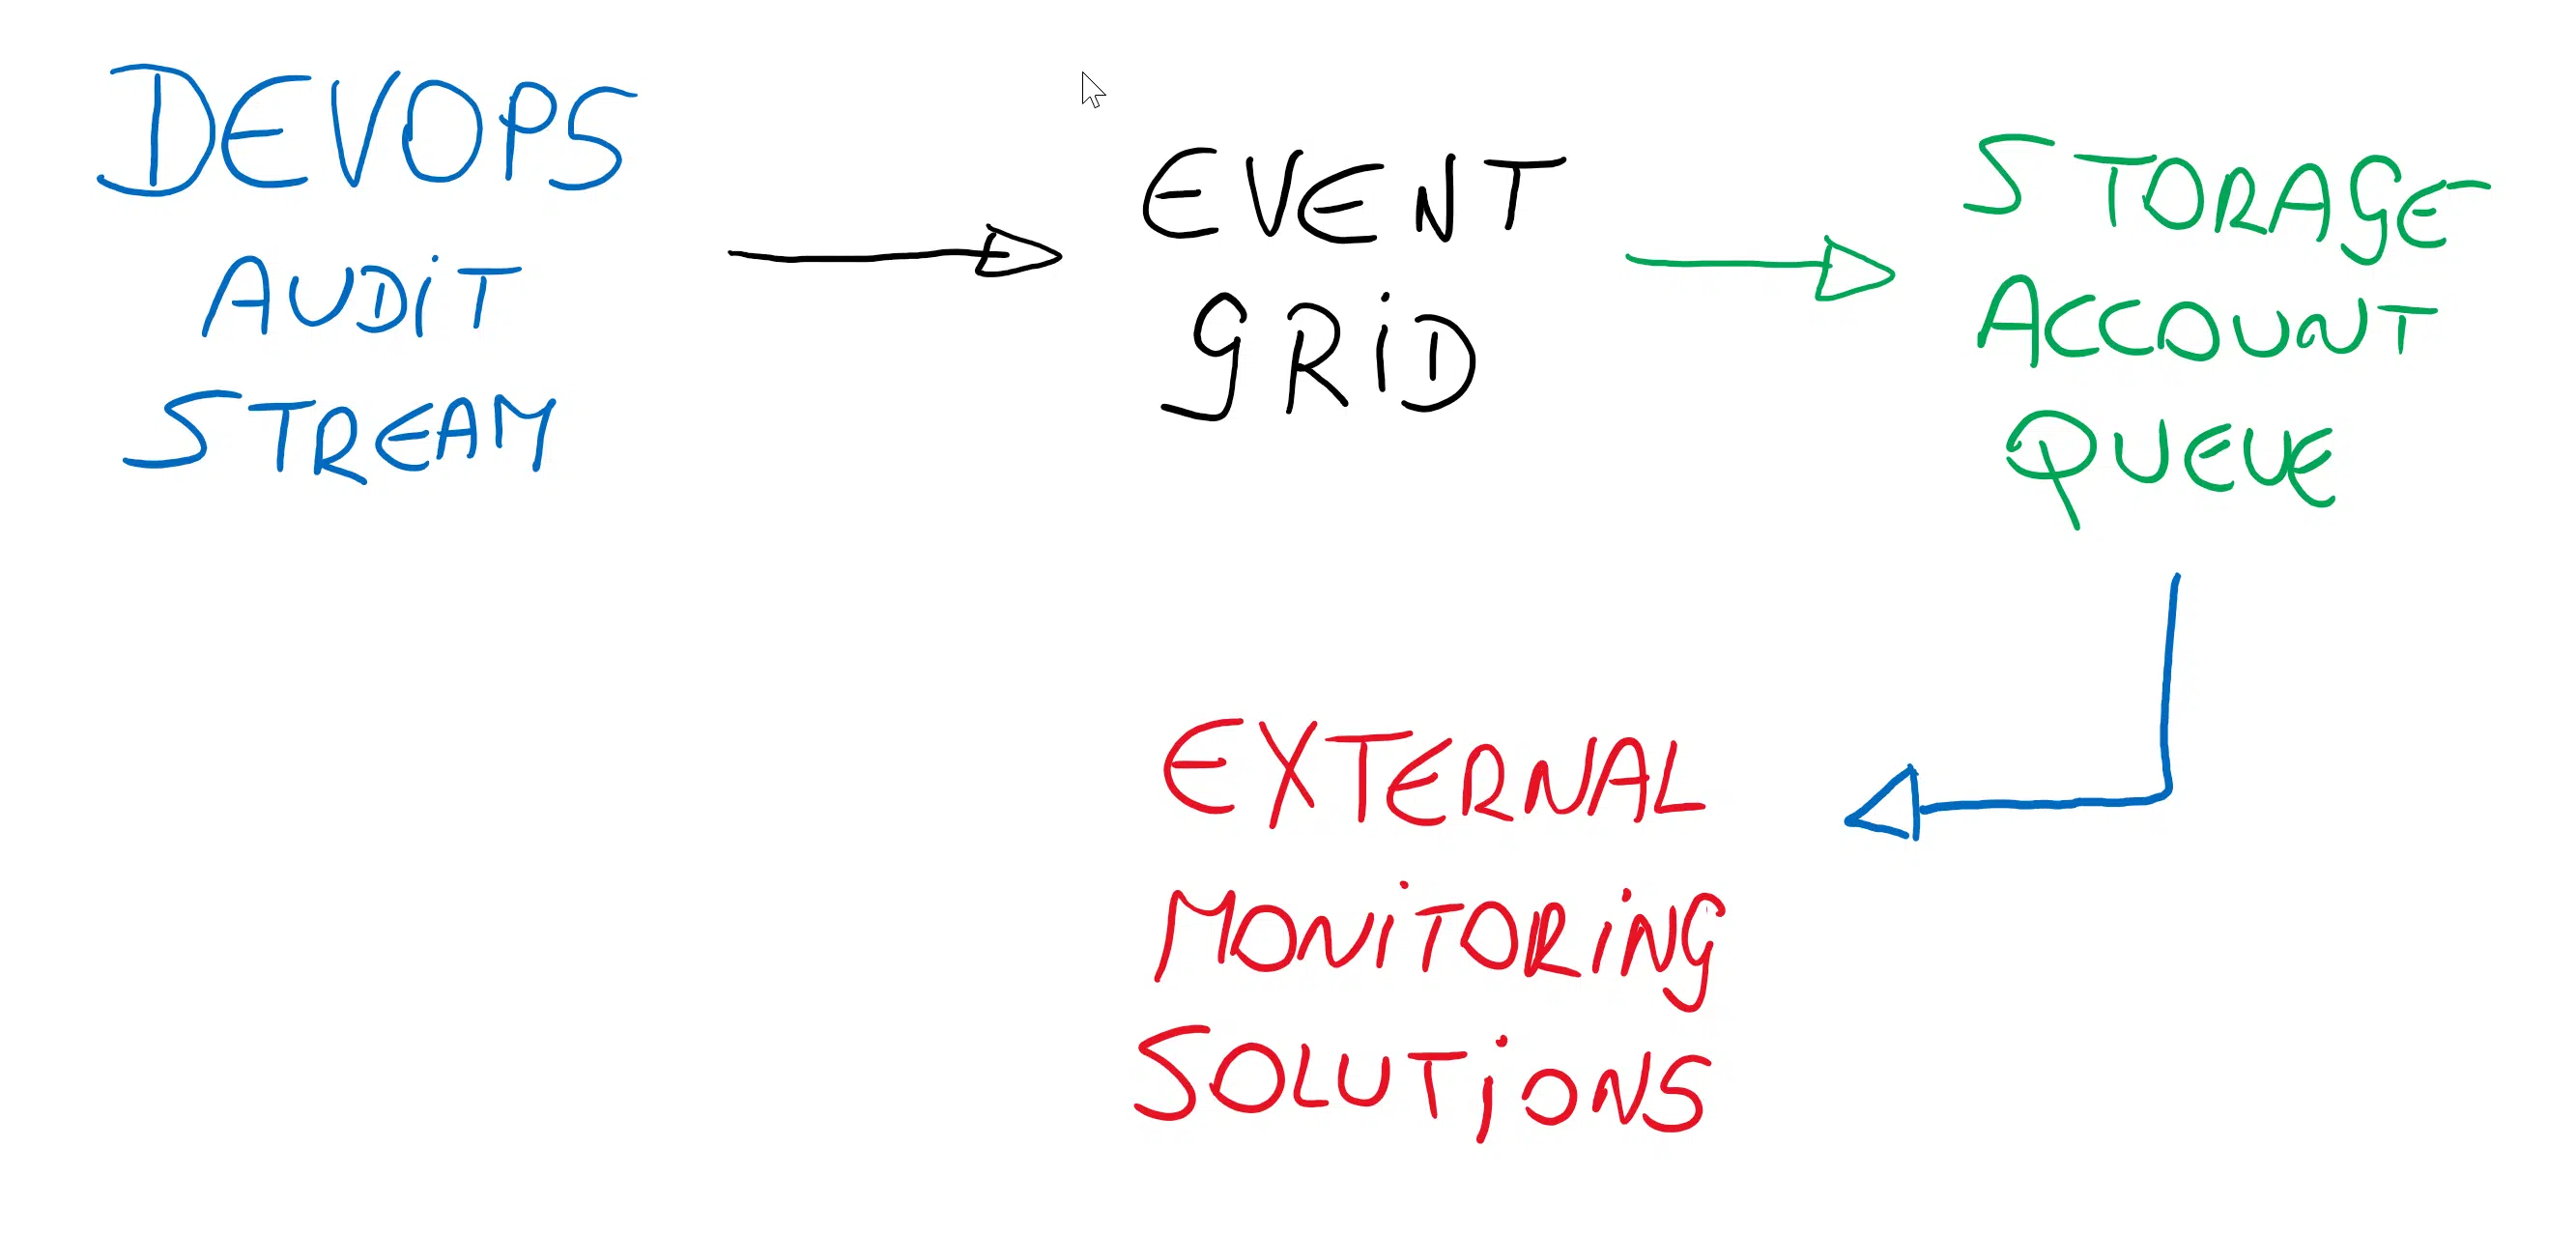 DEVOPS
AUDiT
STREAM
EVENT
GRiD
STORAGE
ACCOUNT
QUEUE
EXTERNAL
MONiTORiNG
SOLUTiONS